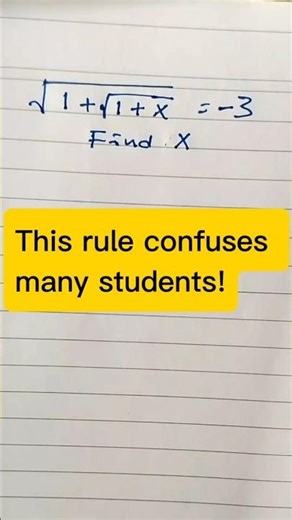 √1+√1+x = -3
Find x
This rule confuses
many students!